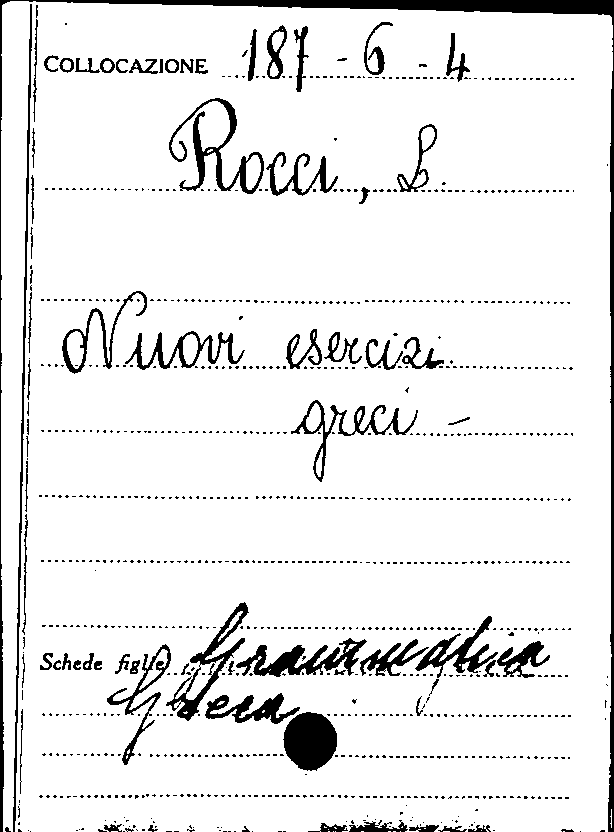 COLLOCAZIONE 187-6-4
Rocci, L.
Nuovi esercizi
greci -
Schede figlie Grammatica
Greca